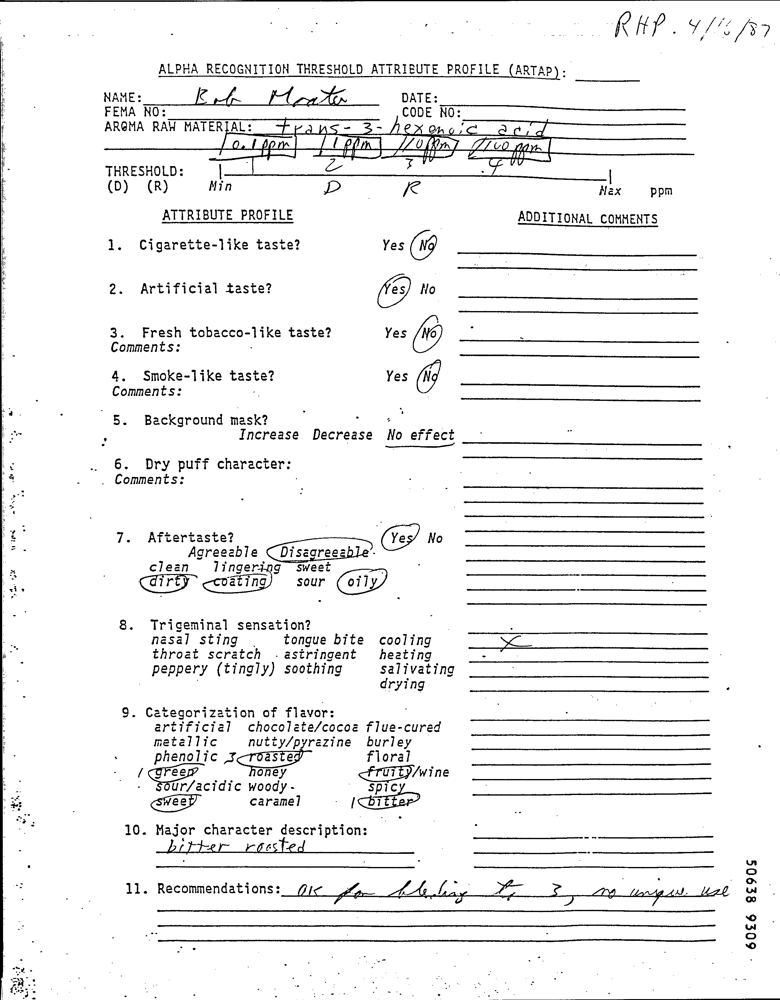 RHP. 4/15/87
ALPHA RECOGNITION THRESHOLD ATTRIBUTE PROFILE (ARTAP):
NAME: Bob DATE:
FEMA NO: CODE NO:
AROMA RAW MATERIAL: trans-3-hexenoic acid
0.1 ppm 1 ppm 10 ppm 100 ppm
2 3 4
THRESHOLD:
(D) (R) Min D R Max ppm
ATTRIBUTE PROFILE ADDITIONAL COMMENTS
1. Cigarette-like taste? Yes No
2. Artificial taste? Yes No
3. Fresh tobacco-like taste? Yes No
Comments:
4. Smoke-like taste? Yes No
Comments:
5. Background mask?
Increase Decrease No effect
6. Dry puff character:
Comments:
7. Aftertaste? Yes No
Agreeable Disagreeable
clean lingering sweet
dirty coating sour oily
8. Trigeminal sensation?
nasal sting tongue bite cooling X
throat scratch astringent heating
peppery (tingly) soothing salivating
drying
9. Categorization of flavor:
artificial chocolate/cocoa flue-cured
metallic nutty/pyrazine burley
phenolic 3 roasted floral
1 green honey fruity/wine
sour/acidic woody spicy
sweet caramel 1 bitter
10. Major character description:
bitter roasted
11. Recommendations: OK for blending to 3, no unique use
50638 9309